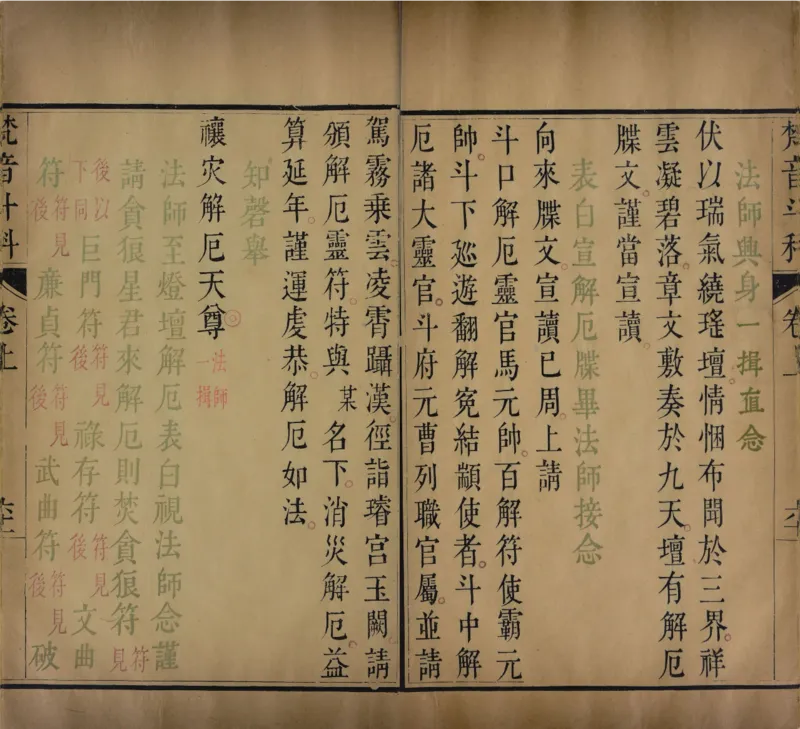 梵音斗科 卷上
法師興身一揖直念
伏以瑞氣繞瑤壇。情悃布聞於三界。祥
雲凝碧落。章文敷奏於九天。壇有解厄
牒文。謹當宣讀。
表白宣解厄牒畢法師接念
向來牒文。宣讀已周。上請
斗口解厄靈官馬元帥。百解符使霸元
帥。斗下廵遊翻解寃結顓使者。斗中解
厄諸大靈官。斗府元曹列職官屬。並請
駕霧乘雲。凌霄躡漢。徑詣璿宮玉闕。請
頒解厄靈符。特與某名下。消災解厄。益
算延年。謹運虔恭。解厄如法。
知磬舉
禳灾解厄天尊 法師一揖
法師至燈壇解厄表白視法師念謹
請貪狼星君來解厄則焚貪狼符符見
後以下同巨門符符見後祿存符符見後文曲
符符見後廉貞符符見後武曲符符見後破
梵音斗科 卷上